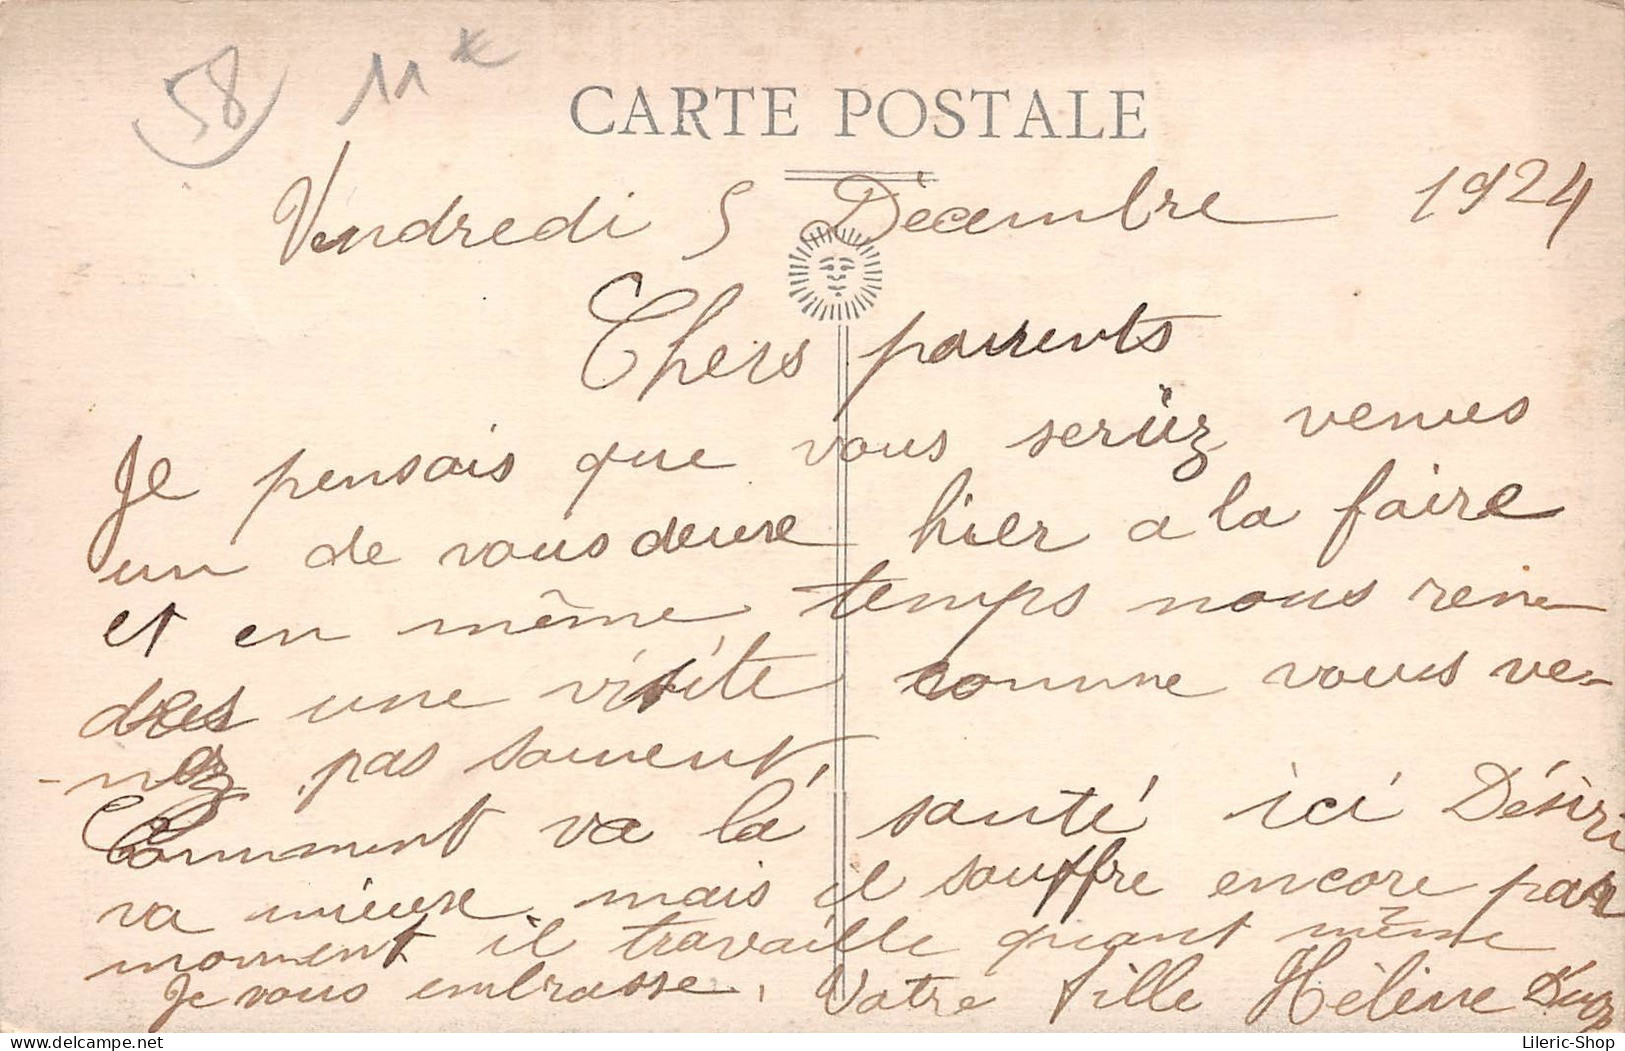 58 11 €
CARTE POSTALE
Vendredi 5 Décembre 1924
Chers parrents
Je pensais que vous seriiz venues
un de vous deuxe hier a la faire
et en même temps nous rene
dres une visite comme vous ve-
-nez pas souvent,
Comment va la santé ici Désiri
va mieuxe mais il souffre encore par
moment il travaille quant même
Je vous embrasse, Votre fille Hélène
Lileric-Shop